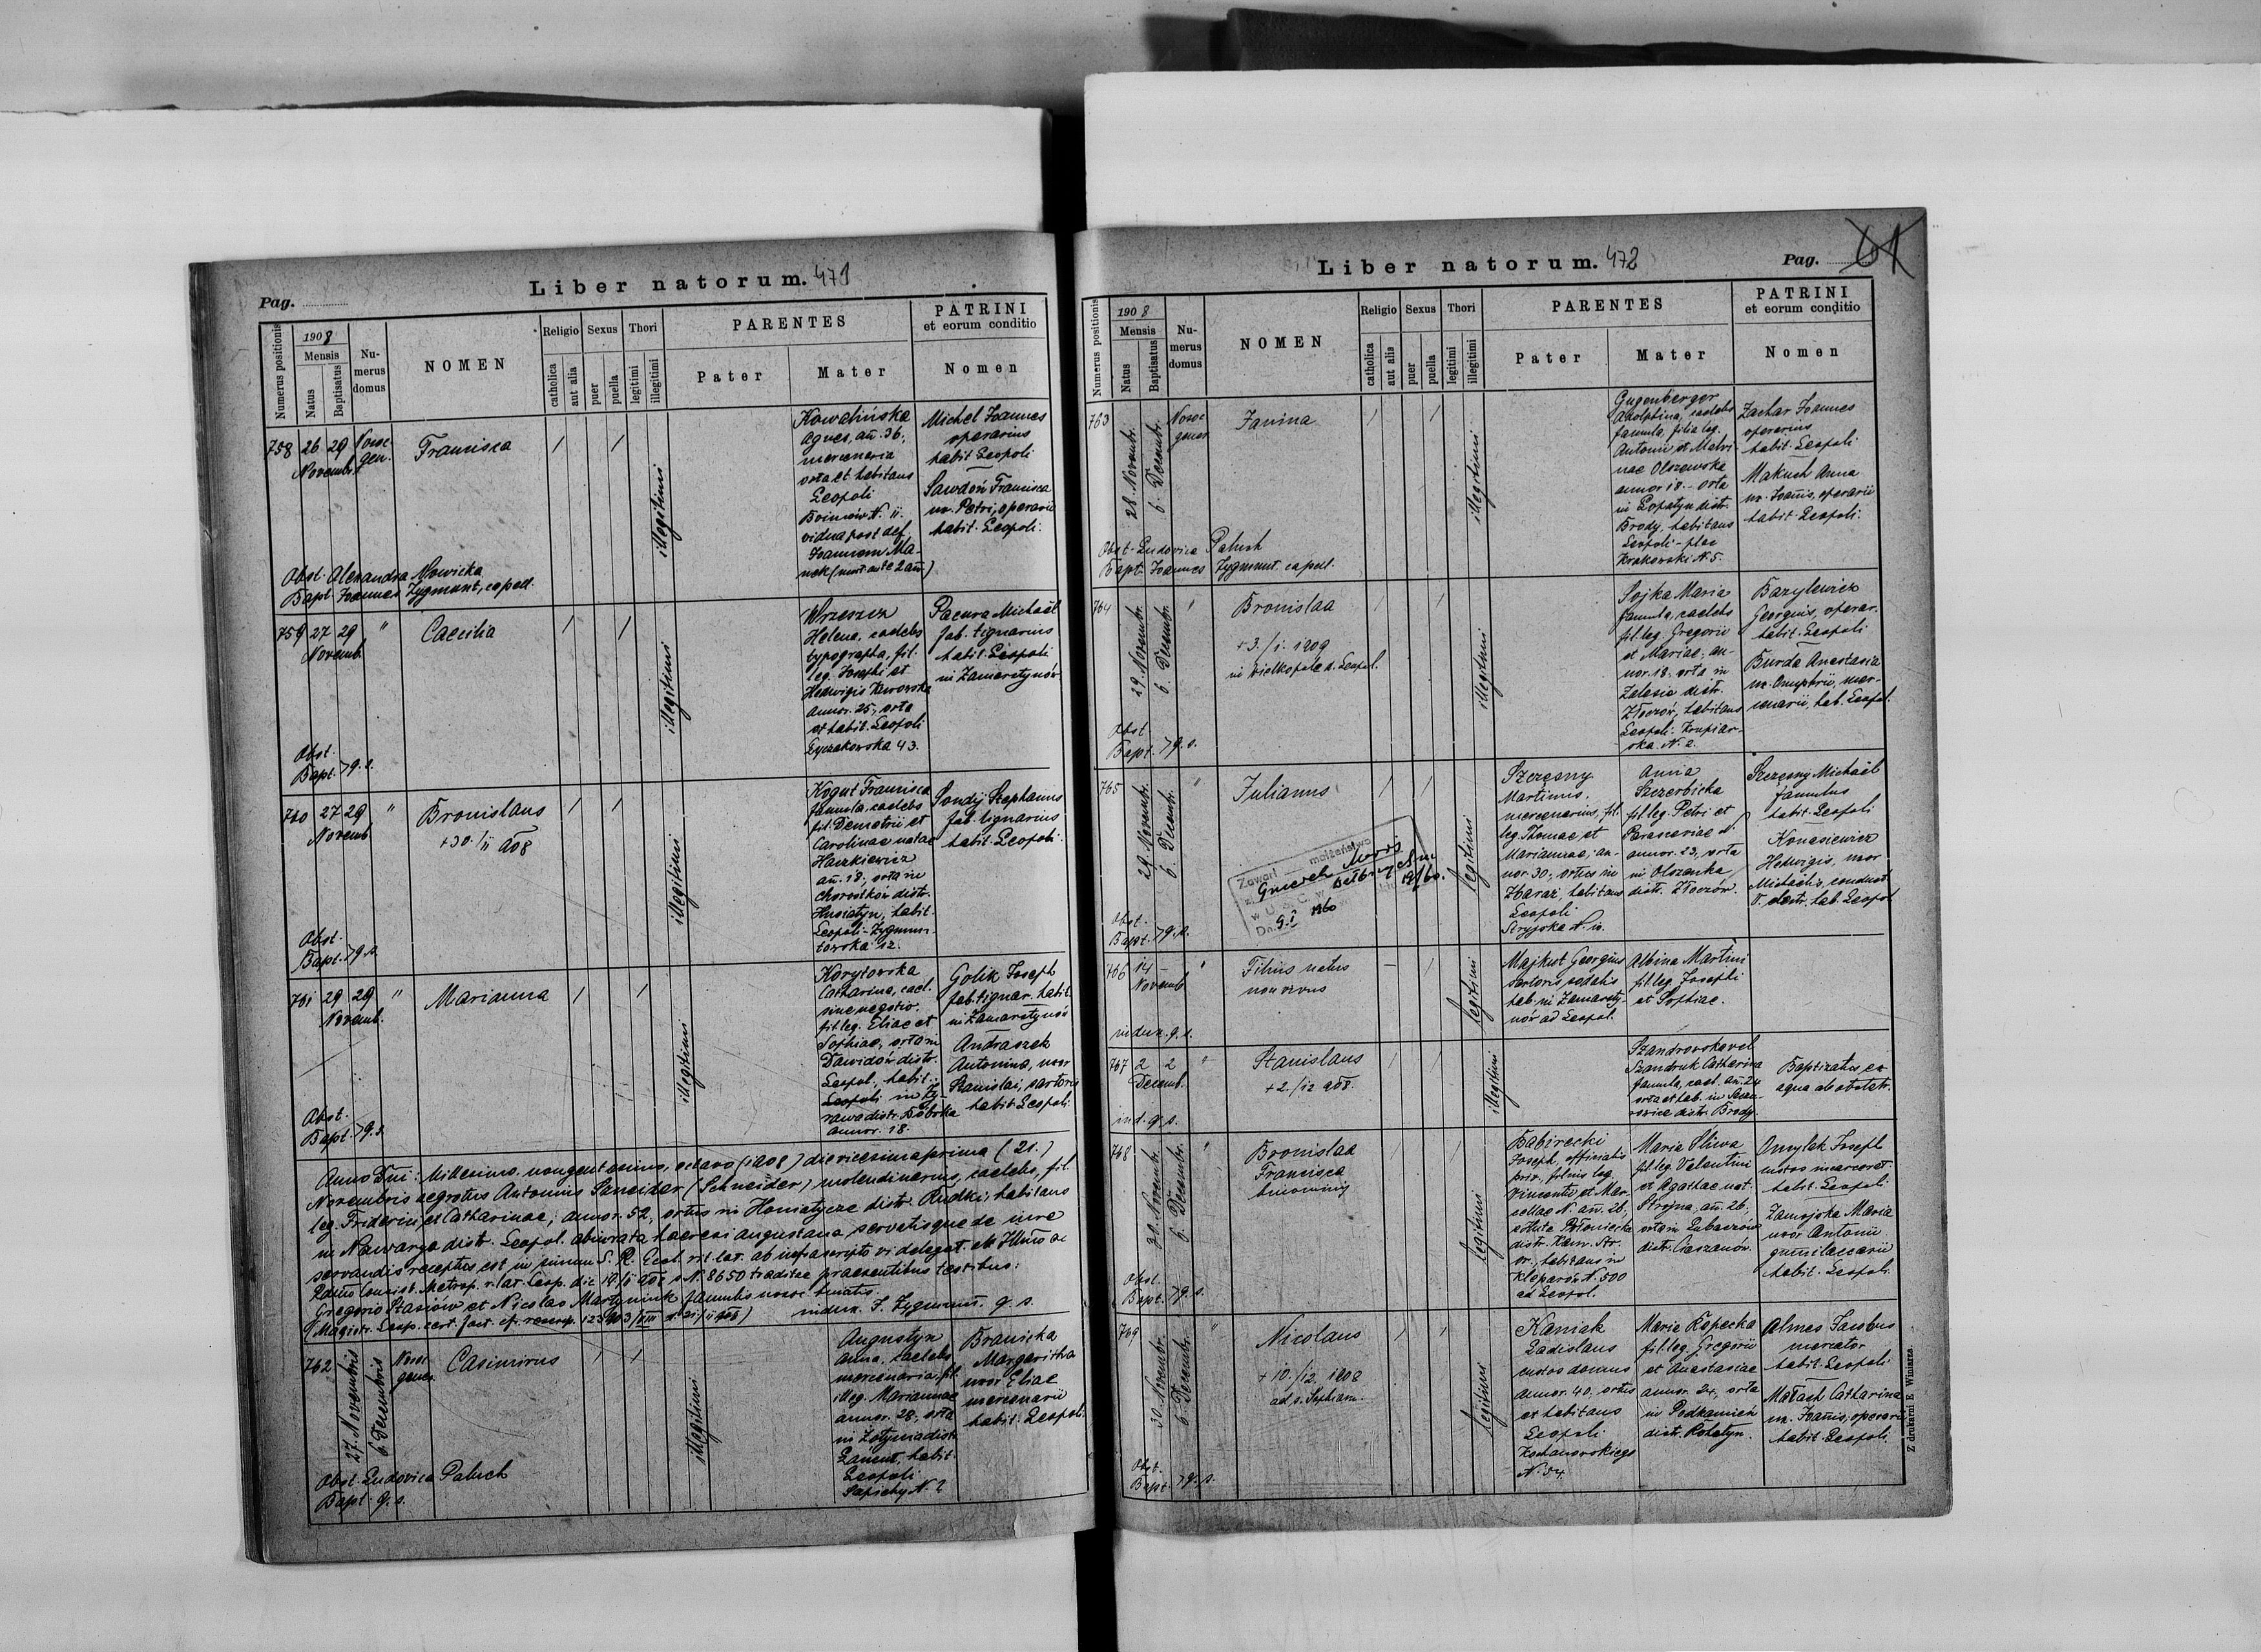 Liber natorum. 471
Pag.
Numerus positionis
1908
Mensis
Natus
Baptisatus
Nu-
merus
domus
NOMEN
Religio
catholica
aut alia
Sexus
puer
puella
Thori
legitimi
illegitimi
PARENTES
Pater
Mater
PATRINI
et eorum conditio
Nomen
758
26 29
Novembr.
Nosoc
gen.
Francisca
illegitimi
Kowalińska
Agnes, añ. 36,
mercenaria
orta et habitans
Leopoli
Boimów N. 11.
vidua post def.
Joannem Ma-
nek (mort. ante 2 añ.)
Michel Joannes
operarius
habit Leopoli
Sawdoń Francisca
ux. Petri, operarii
habit. Leopoli.
Obst. Alexandra Nowicka
Bapt Joannes Zygmunt, coped.
759
27 29
Novemb.
"
Caecilia
illegitimi
Wrzeszcz
Helena, caelebs
typographa, fil.
leg. Josephi et
Hedwigis
annor. 25, orta
et habit. Leopoli
Łyczakowska 43.
Pacura Michaël
fab. lignarius
habit. Leopoli
in Zamarstynów
Obst.
Bapt. > q. s.
760
27 29
Novemb.
"
Bronislaus
+30./11 908
illegitimi
Kogut Francisca
famula, caelebs
fil. Demetrii et
Carolinae natae
Haszkiewicz
añ. 18, orta in
Chorostków distr.
Husiatyn, habit.
Leopoli - Zygmun-
towska 12.
Sondij Stephanus
fab. lignarius
habit. Leopoli.
Obst.
Bapt. > q. s.
761
29 29
Novemb.
"
Marianna
illegitimi
Korytowska
Catharina, cael.
sine negotio,
fil. leg. Eliae et
Sophiae, orta in
Dawidów distr.
Leopol., habit.
Leopoli in Ży-
rawa distr. Bóbrka
annor. 18.
Golik Joseph
fab. lignar. habit.
in Zamarstynów
Andraszek
Antonina, uxor
Stanislai, sartoris
habit Leopoli.
Obst.
Bapt. > q. s.
Anno Dñi: Millesimo, nongentesimo, octavo (1908) die vicesima prima (21.)
Novembris aegrotus Antonius Sznejder (Schneider) molendinarius, caelebs, fil.
leg. Friderici et Catharinae, annor. 52, ortus in Honiatycze distr. Rudki, habitans
in Nawarya distr. Leopol. abiurata haeresi augustana servatisque de iure
servandis receptus est in sinum S. R. Eccl. rit. lat. ab infrascripto vi delegat. ab Illmo ac
Rdmo Consist. Metrop. r. lat. Leop. die 19/11 908 N. 8650 traditae praesentibus testibus:
Gregorio Stasiów et Nicolao Martyniuk famulis
(Magistr. Leop. cert. fact.
indux. J. Zygmunt. q. s.
762
27. Novembris
6. Decembris
Nosoc
gener.
Casimirus
illegitimi
Augustyn
Anna, caelebs
mercenaria, fil.
illeg. Mariannae
annor. 28, orta
in Żołynia distr.
Łańcut, habit.
Leopoli
Sapiehy N. ?
Branicka
Margaritha
uxor Eliae
mercenarii
habit. Leopoli.
Obst. Ludovica Paluch
Bapt. q. s.
Liber natorum. 472
Pag. 61
Numerus positionis
1908
Mensis
Natus
Baptisatus
Nu-
merus
domus
NOMEN
Religio
catholica
aut alia
Sexus
puer
puella
Thori
legitimi
illegitimi
PARENTES
Pater
Mater
PATRINI
et eorum conditio
Nomen
763
28. Novembr.
6. Decembr.
Nosoc
gener
Janina
illegitimi
Gugenberger
Adolphina, caelebs
famula, filia leg.
Antonii et Malvi-
nae Olszewska
annor. 18. - orta
in Łopatyn distr.
Brody, habitans
Leopoli - plac
Krakowski N. 5.
Zachar Joannes
operarius
habit. Leopoli
Makuch Anna
ux. Joañis, operarii
habit. Leopoli.
Obst. Ludovica Paluch
Bapt. Joannes Zygmunt. coped.
764
29. Novembr.
6. Decembr.
"
Bronislaa
+3./1. 1909
in Wielkopole d. Leopol.
illegitimi
Sojka Maria
famula, caelebs
fil. leg. Gregorii
et Mariae, an-
nor. 18. orta in
Zalesie distr.
Złoczów, habitans
Leopoli. Krupiar-
ska N. 2.
Bazylewicz
Georgius, operar.
habit. Leopoli
Burda Anastasia
ux. Onuphrii, mer-
cenarii, hab. Leopol.
Obst
Bapt. > q. s.
765
29. Novembr.
6. Decembr.
"
Julianus
Zawarł małżeństwo
w U S C w
Dn. 9. I 1960
legitimi
Szczęsny
Martinus,
mercenarius, fil.
leg. Thomae et
Mariannae, an-
nor. 30, ortus in
Zbaraż, habitans
Leopoli
Stryjska N. 10.
Anna
Szczerbicka
fil. leg. Petri et
Parasceviae N.
annor. 23, orta
in Olszanka
distr. Złoczów.
Szczęsny Michaël
famulus
habit. Leopoli
Konasiewicz
Hedwigis, uxor
Michaelis, conduct.
V. electr. hab. Leopol.
Obst.
Bapt. > q. s.
766
14 –
Novemb
"
Filius natus
non vivus
legitimi
Majkut Georgius
sartoris sodalis
hab. in Zamarsty-
nów ad Leopol.
Albina Martini
fil. leg. Josephi
et Sophiae.
indux. q. s.
767
2 2
Decemb.
"
Stanislaus
+2./12 908.
illegitimi
Szandrowskovel
Szandruk Catharina
famula, cael. añ. 24
orta et hab. in
distr. Brody.
Baptizatus ex
aqua ab obstetr.
ind. q. s.
768
30. Novembr.
6. Decembr.
"
Bronislaa
Francisca
binominis
legitimi
Babirecki
Joseph, officialis
priv. filius leg.
Vincentii et Mar-
cellae N. añ. 26,
distr. Kam. Str.
or., habitans in
Kleparów N. 500
ad Leopol.
Maria Śliwa
fil. leg. Valentini
et Agathae nat.
Stryjna, añ. 26,
orta in Lubaczów
distr. Cieszanów.
Omylak Joseph
custos incarcerat.
habit. Leopoli
Zamojska Maria
uxor Antonii
gumilaccarii
habit. Leopoli.
Obst.
Bapt. > q. s.
769
30. Novembr.
6. Decembr.
"
Nicolaus
+ 10./12. 1908
ad s. Sophiam.
legitimi
Kaniak
Ladislaus
custos domus
annor. 40, ortus
et habitans
Leopoli
Kochanowskiego
N. 54.
Maria Rzpecka
fil. leg. Gregorii
et Anastasiae
annor. 24, orta
in Podkamień
distr. Rohatyn.
Almes Jacobus
mercator
habit. Leopoli
Małach Catharina
ux. Joañis, operarii
habit. Leopoli.
Obst.
Bapt. > q. s.
Z drukarni E Winiarza.